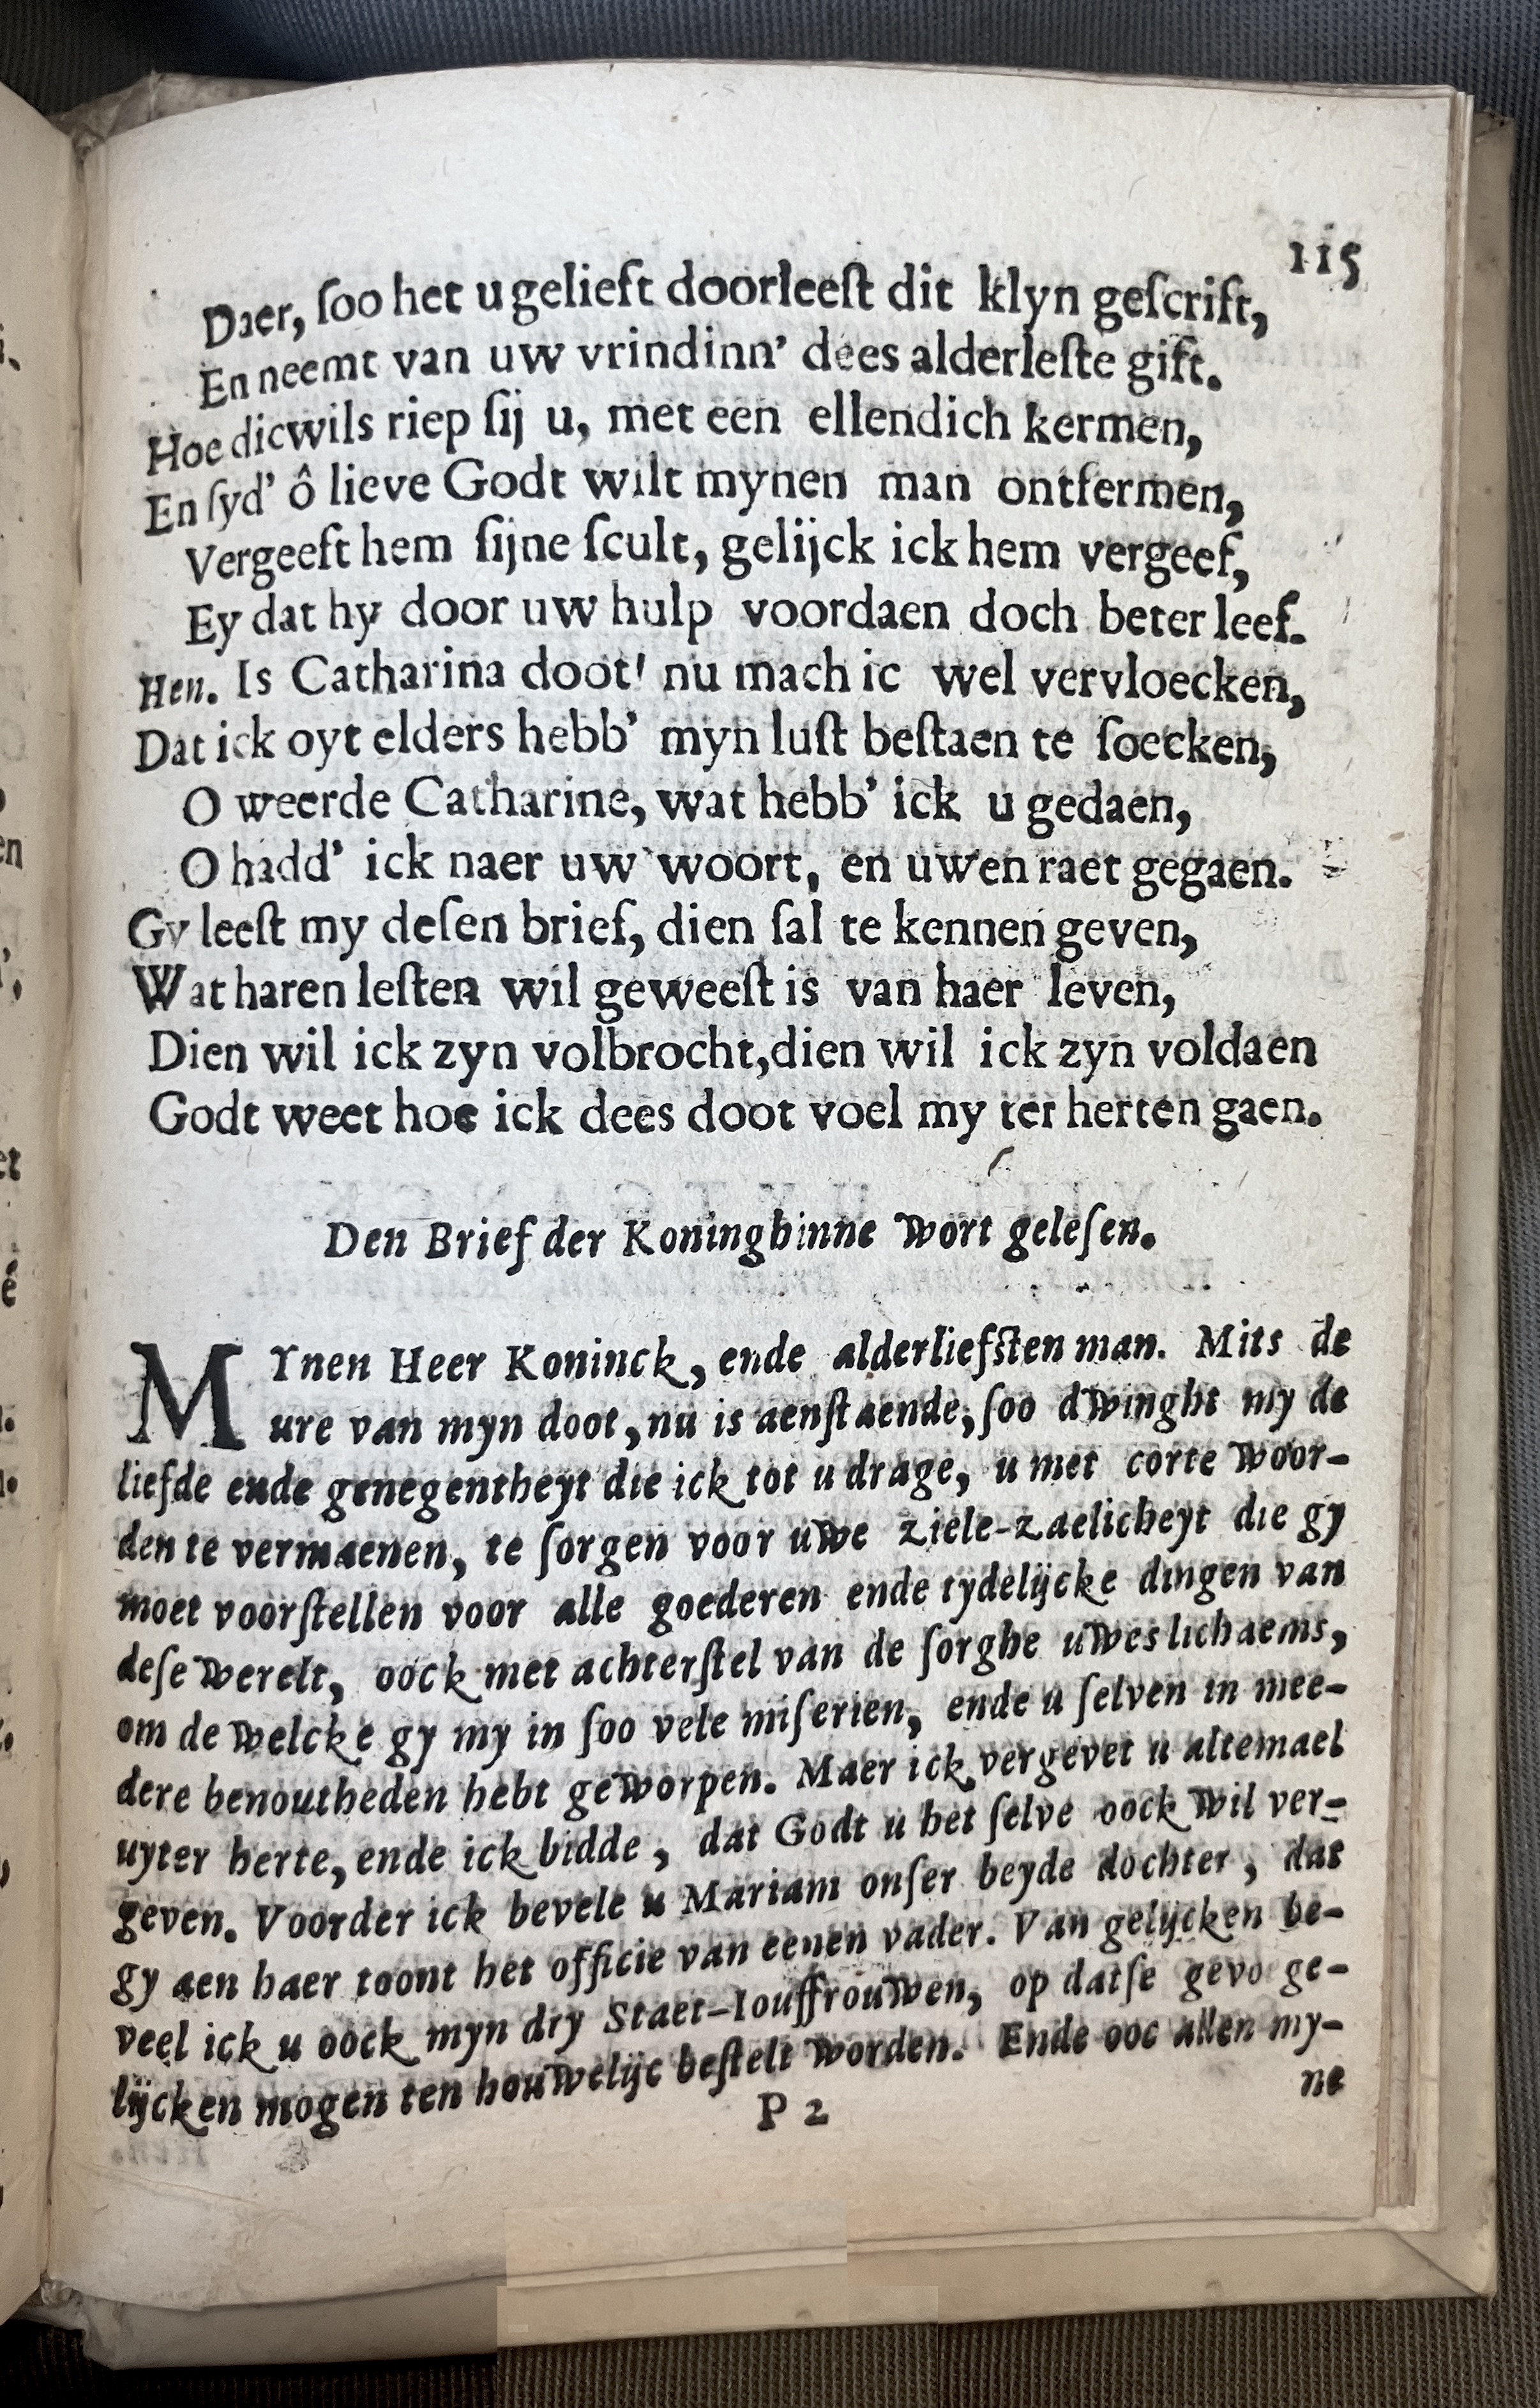 115
Daer, ſoo het u gelieft doorleeſt dit klyn geſcrift,
En neemt van uw vrindinn' dees alderleſte gift.
Hoe dicwils riep ſij u, met een ellendich kermen,
En ſyd' ô lieve Godt wilt mynen man ontfermen,
Vergeeft hem ſijne ſcult, gelijck ick hem vergeef,
Ey dat hy door uw hulp voordaen doch beter leef.
Hen. Is Catharina doot! nu mach ic wel vervloecken,
Dat ick oyt elders hebb' myn luſt beſtaen te ſoecken,
O weerde Catharine, wat hebb' ick u gedaen,
O hadd' ick naer uw woort, en uwen raet gegaen.
Gy leeſt my deſen brief, dien ſal te kennen geven,
Wat haren leſten wil geweeſt is van haer leven,
Dien wil ick zyn volbrocht, dien wil ick zyn voldaen
Godt weet hoe ick dees doot voel my ter herten gaen.
Den Brief der Koninghinne wort geleſen.
MYnen Heer Koninck, ende alderliefſten man. Mits de
ure van myn doot, nu is aenſtaende, ſoo dwinght my de
liefde ende genegentheyt die ick tot u drage, u met corte woor-
den te vermaenen, te ſorgen voor uwe ziele-zaelicheyt die gy
moet voorſtellen voor alle goederen ende tydelijcke dingen van
deſe werelt, oock met achterſtel van de ſorghe uwes lichaems,
om de welcke gy my in ſoo vele miſerien, ende u ſelven in mee-
dere benoutheden hebt geworpen. Maer ick vergevet u altemael
uyter herte, ende ick bidde, dat Godt u het ſelve oock wil ver-
geven. Voorder ick bevele u Mariam onſer beyde dochter, dat
gy aen haer toont het officie van eenen vader. Van gelijcken be-
veel ick u oock myn dry Staet-Iouffrouwen, op datſe gevo ge-
lijcken mogen ten houwelijc beſtelt worden. Ende ooc allen my-
P 2
ne